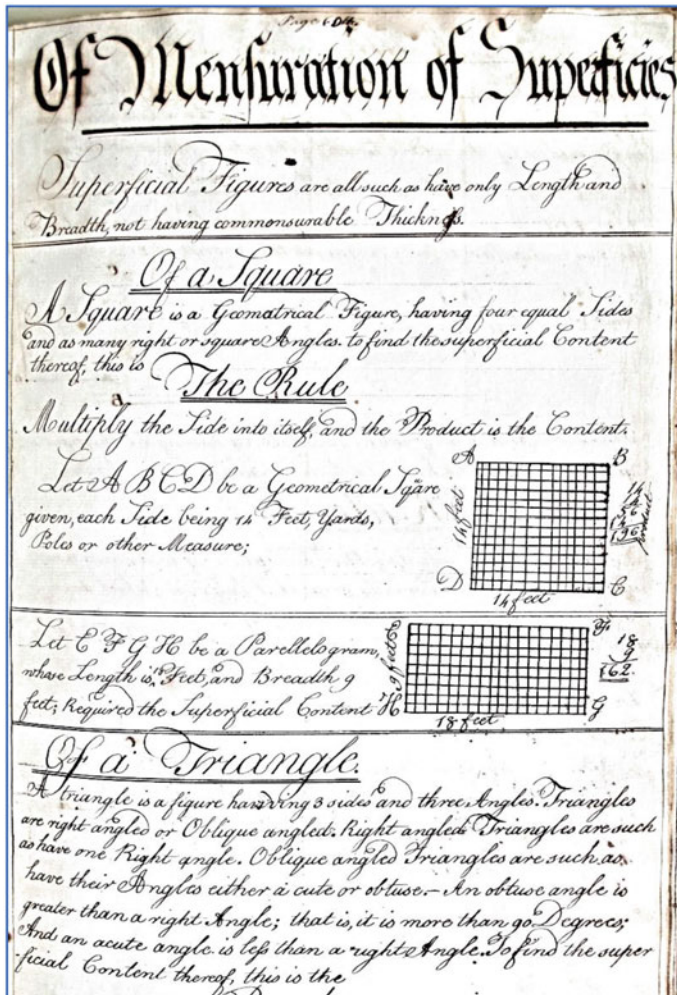 Page
Of Mensuration of Superficies
Superficial Figures are all such as have only Length and
Breadth, not having commonsurable Thickness.
Of a Square
A Square is a Geomatrical Figure, having four equal Sides
and as many right or square Angles. to find the superficial Content
thereof, this is
The Rule
Multiply the Side into itself, and the Product is the Content.
Let A B C D be a Geometrical Sqare
given, each Side being 14 Feet, Yards,
Poles or other Measure;
A B
14 feet
D C
14 feet
14
14
56
14
196
product
Let E F G H be a Parellelogram,
whose Length is 18 Feet, and Breadth 9
feet; Required the Superficial Content
E F
9 feet
H G
18 feet
18
9
162
Of a Triangle.
A triangle is a figure having 3 sides and three Angles. Triangles
are right angled or Oblique angled. Right angled Triangles are such
as have one Right angle. Oblique angled Triangles are such as
have their Angles either a cute or obtuse. – An obtuse angle is
greater than a right Angle; that is, it is more than 90 Degrees;
And an acute angle is less than a right Angle. To find the super
ficial Content thereof, this is the